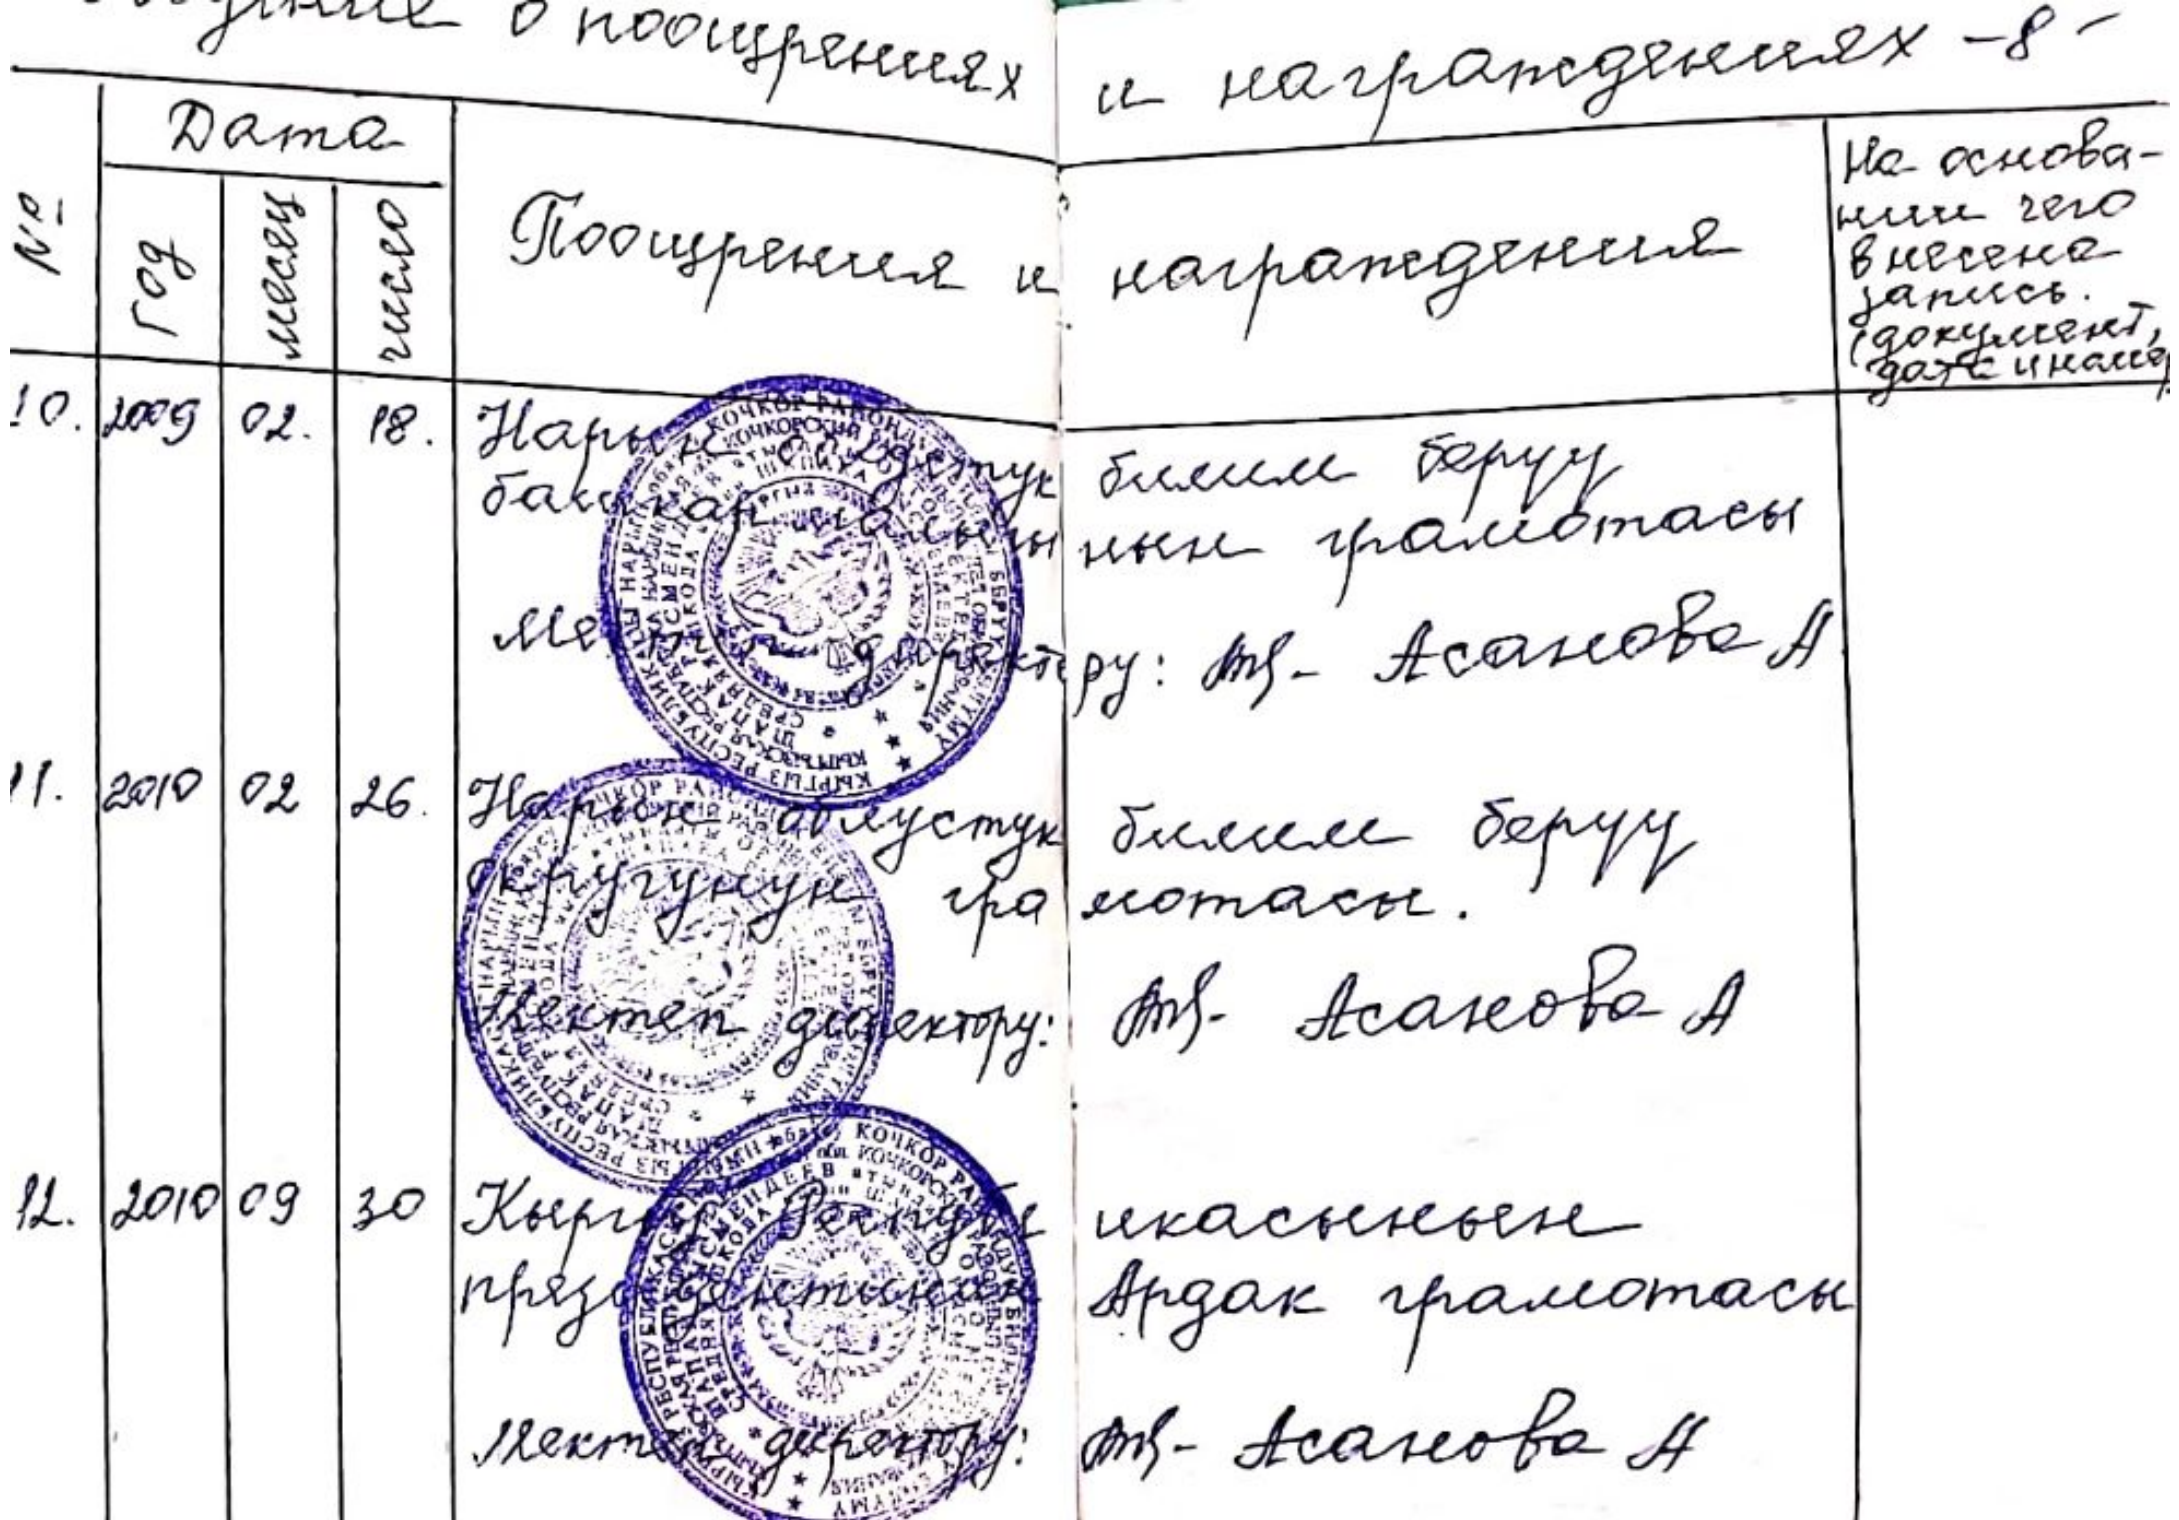 о поощрениях и награждениях -8-
№
Дата
Год
месяц
число
Поощрения и награждения
На основа-
нии чего
внесена
запись.
(документ,
дата и номер
10. 2009 02. 18. Нарын облустук билим берүү
башкармалыгынын грамотасы
Мектеп директору: Асанова А
11. 2010 02 26. Нарын облустук билим берүү
округунун грамотасы.
Мектеп директору: Асанова А
12. 2010 09 30 Кыргыз Республикасынын
президентинин Ардак грамотасы
Мектеп директору: Асанова А